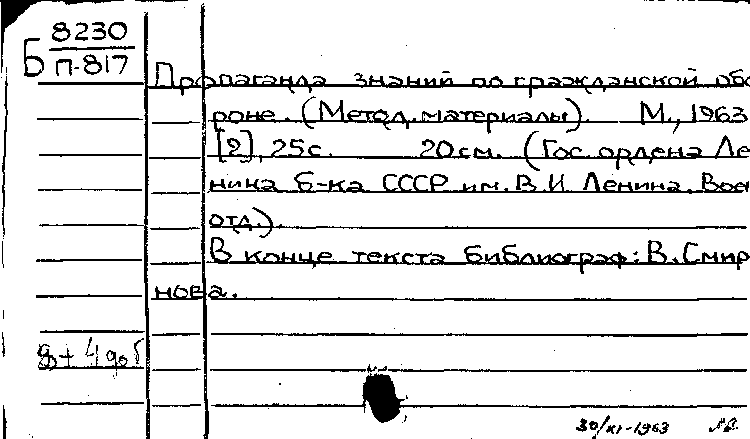 Б 8230
П-817
Пропаганда знаний по гражданской обо
роне. (Метод. материалы). М., 1963
[2], 25с. 20см. (Гос. ордена Ле
нина б-ка СССР им. В. И. Ленина. Воен
отд.).
В конце текста библиограф: В. Смир
нова.
4 доб
30/XI-1963